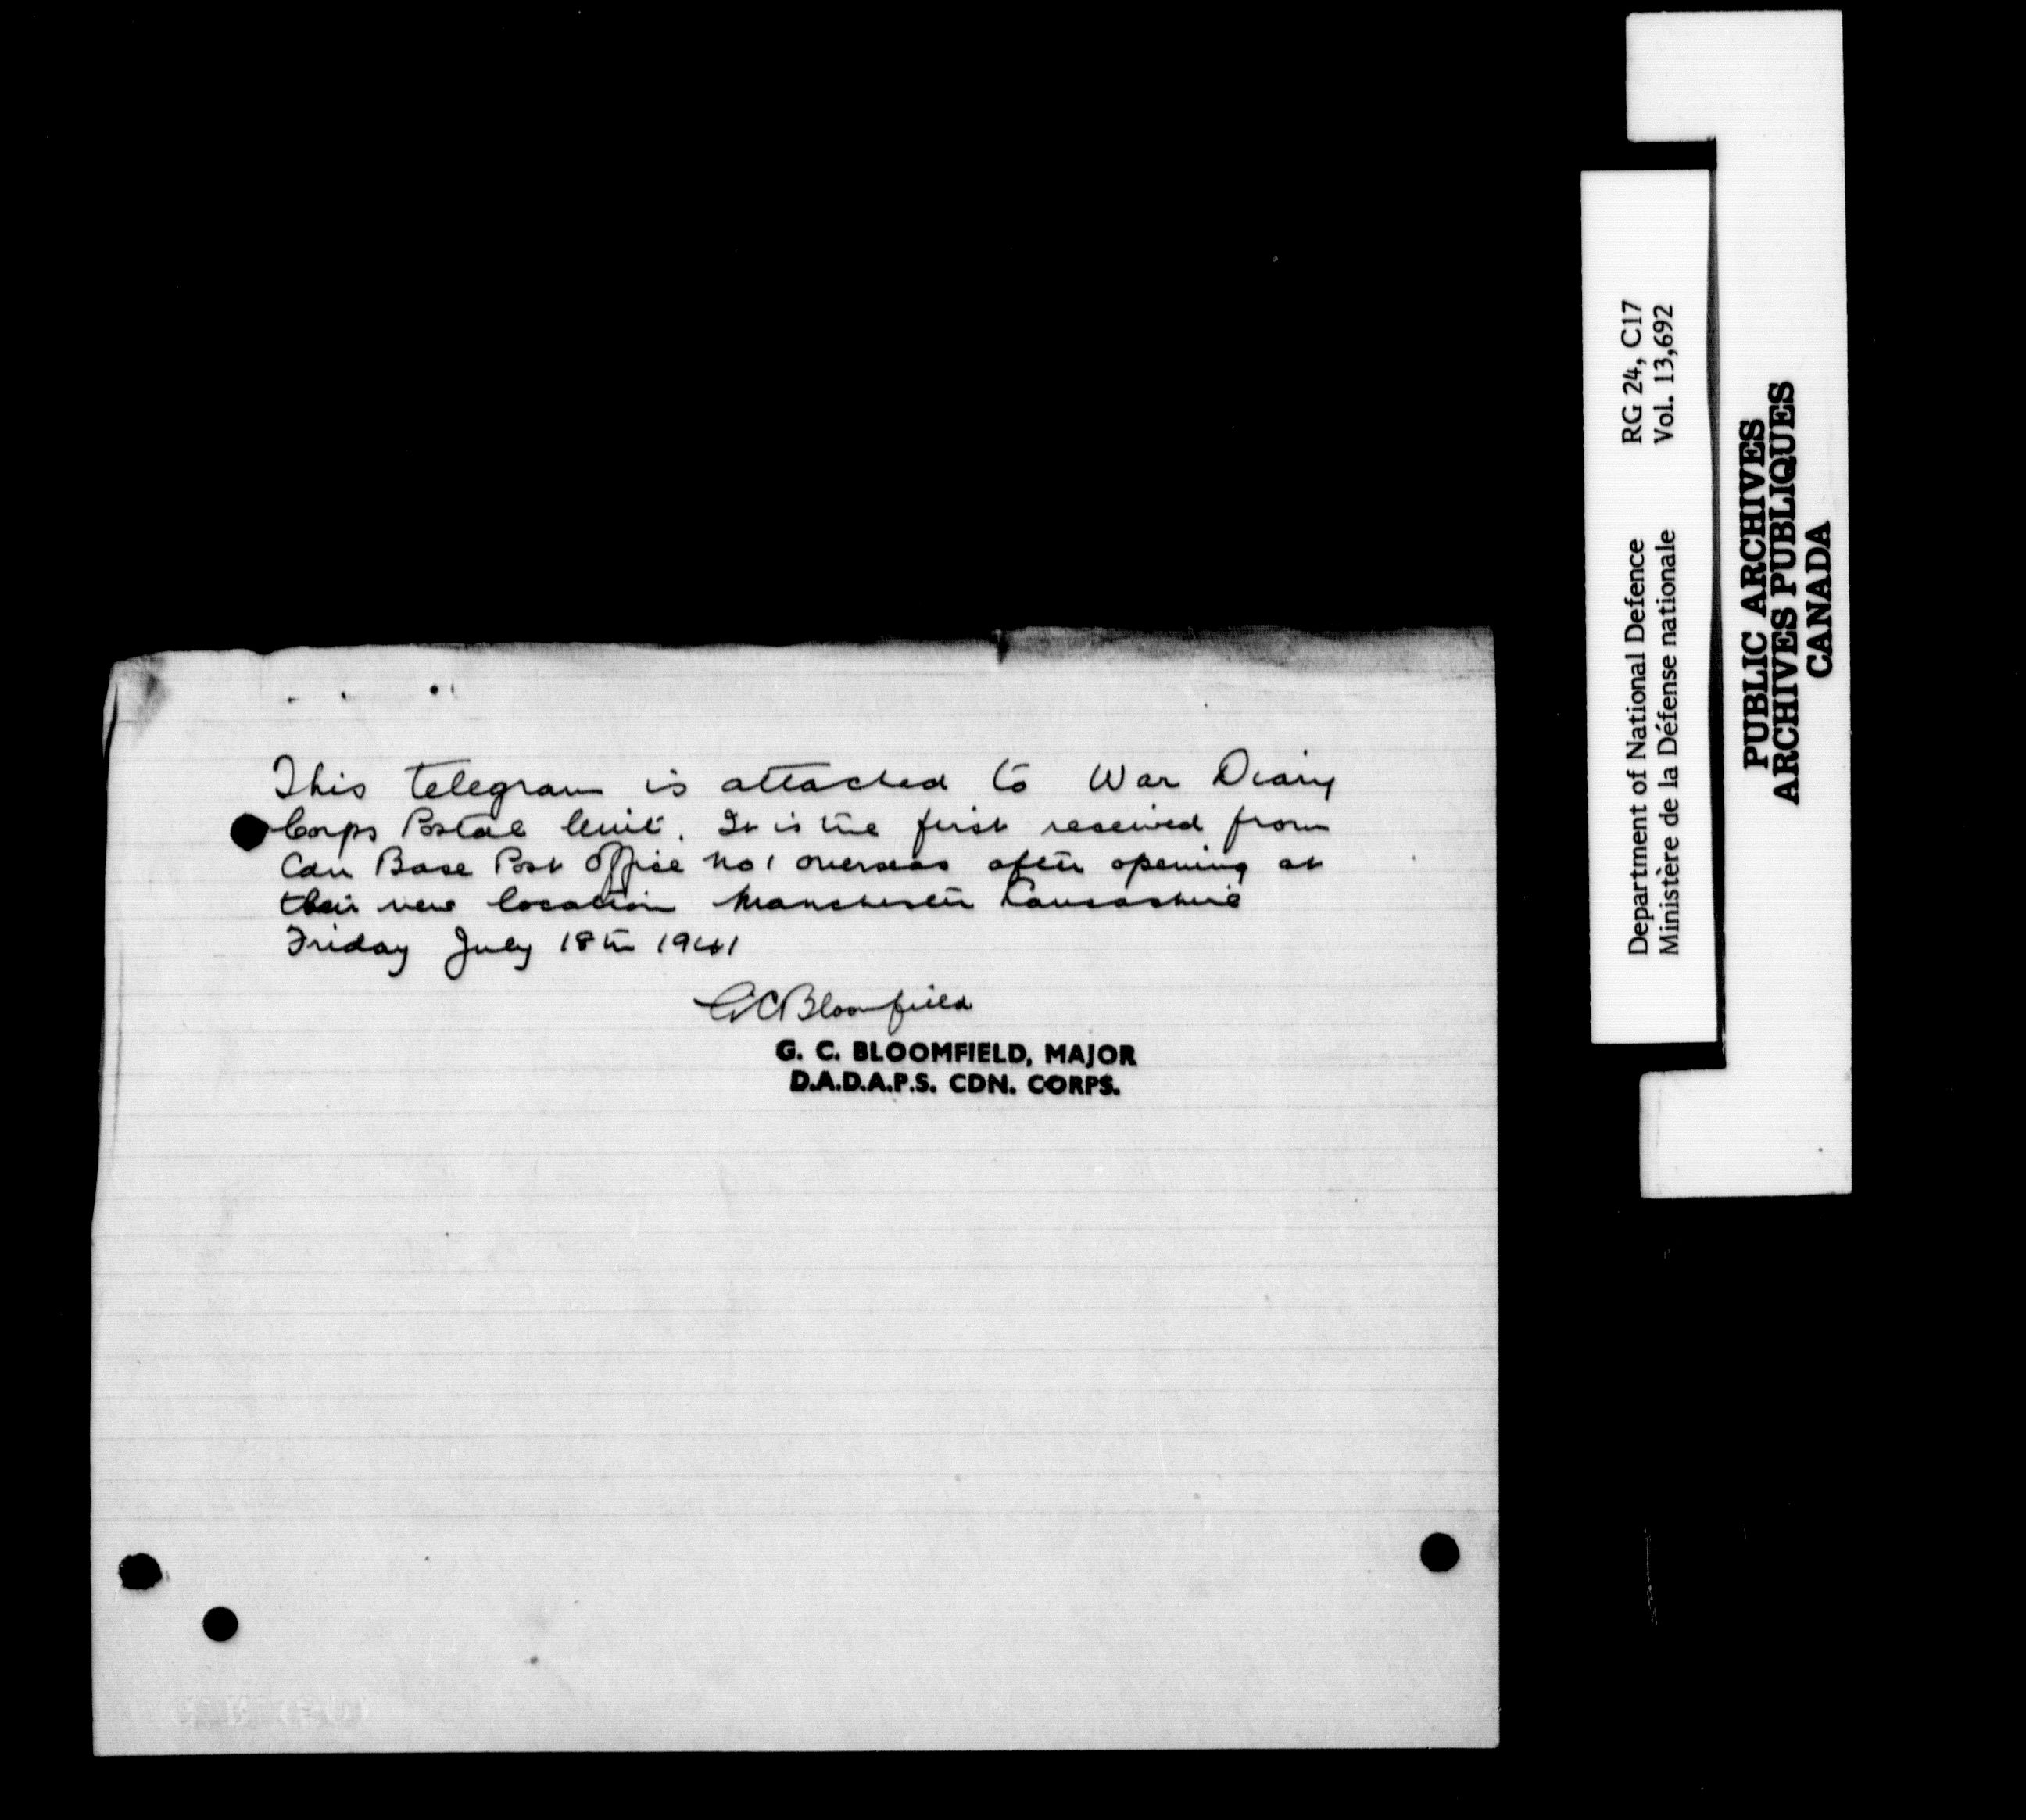 This telegram is attached to War Diary
Corps Postal Unit. It is the first received from
Cdn Base Post Office No 1 overseas after opening at
their new location Manchester Lancashire
Friday July 18th 1941
GCBloomfield
G. C. BLOOMFIELD, MAJOR
D.A.D.A.P.S. CDN. CORPS.
Department of National Defence RG 24, C17
Ministère de la Défense nationale Vol. 13,692
PUBLIC ARCHIVES
ARCHIVES PUBLIQUES
CANADA